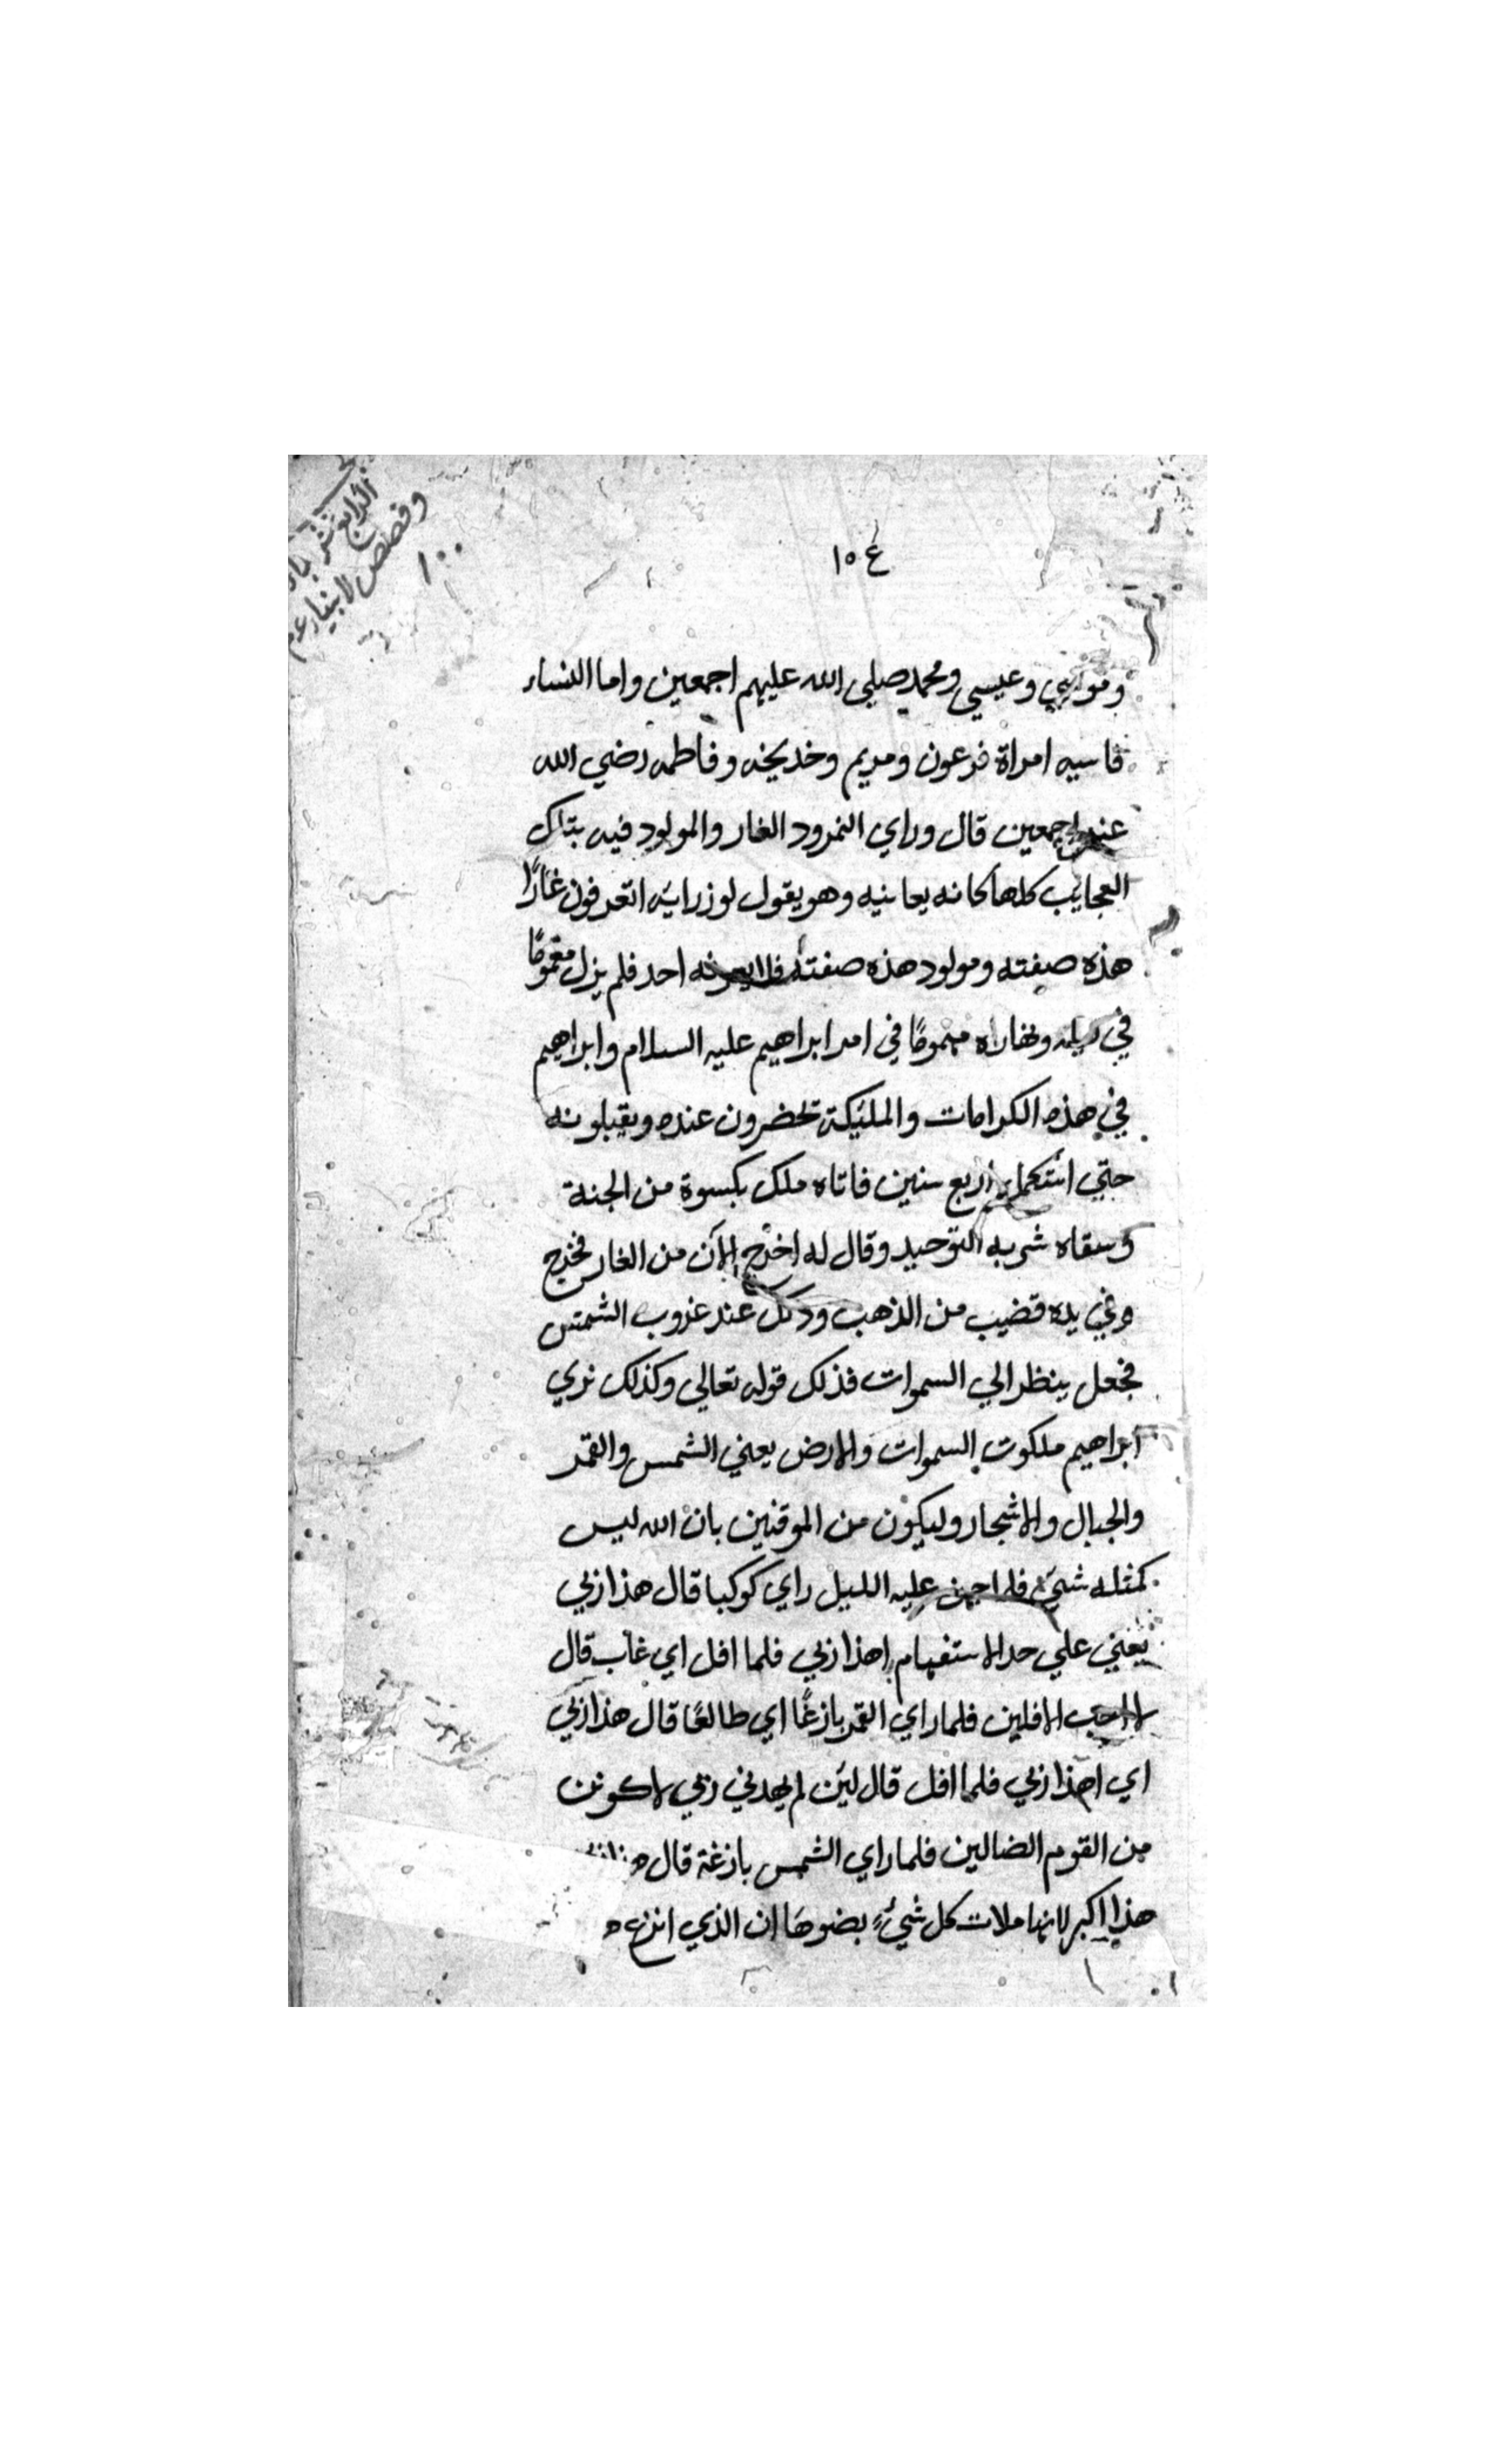 ١٥٤
وقصص الانبيا
١٠٠
وموسي وعيسي ومحمد صلي الله عليهم اجمعين واما النساء
فاسيه امراة فرعون ومريم وخديجه وفاطمه رضي الله
اجمعين قال وراي النمرود الغار والمولود فيه بتلك
العجايب كلها كانه يعاينه وهو يقول لوزرايه اتعرفون غارًا
هذه صفته ومولود هذه صفته احد فلم يزل مغمومًا
في ليله ونهاره مهمومًا في امر ابراهيم عليه السلام وابراهيم
في هذه الكرامات والمليكة تحضرون عنده ويقبلونه
حتي استكمل اربع سنين فاتاه ملك بكسوة من الجنة
وسقاه شربه التوحيد وقال له اخرج الآن من الغار فخرج
وفي يده قضيب من الذهب وذلك عند غروب الشمس
فجعل ينظر الي السموات فذلك قوله تعالي وكذلك نري
ابراهيم ملكوت السموات والارض يعني الشمس والقمر
والجبال والاشجار وليكون من الموقنين بان الله ليس
كمثله شيء فلما جن عليه الليل راي كوكبا قال هذا ربي
يعني علي حد الاستفهام اهذا ربي فلما افل اي غاب قال
لا احب الافلين فلما راي القمر بازغًا اي طالعًا قال هذا ربي
اي اهذا ربي فلما افل قال لين لم يهدني ربي لاكونن
من القوم الضالين فلما راي الشمس بازغة قال
هذا اكبر لانها ملات كل شيء بضوها ان الذي